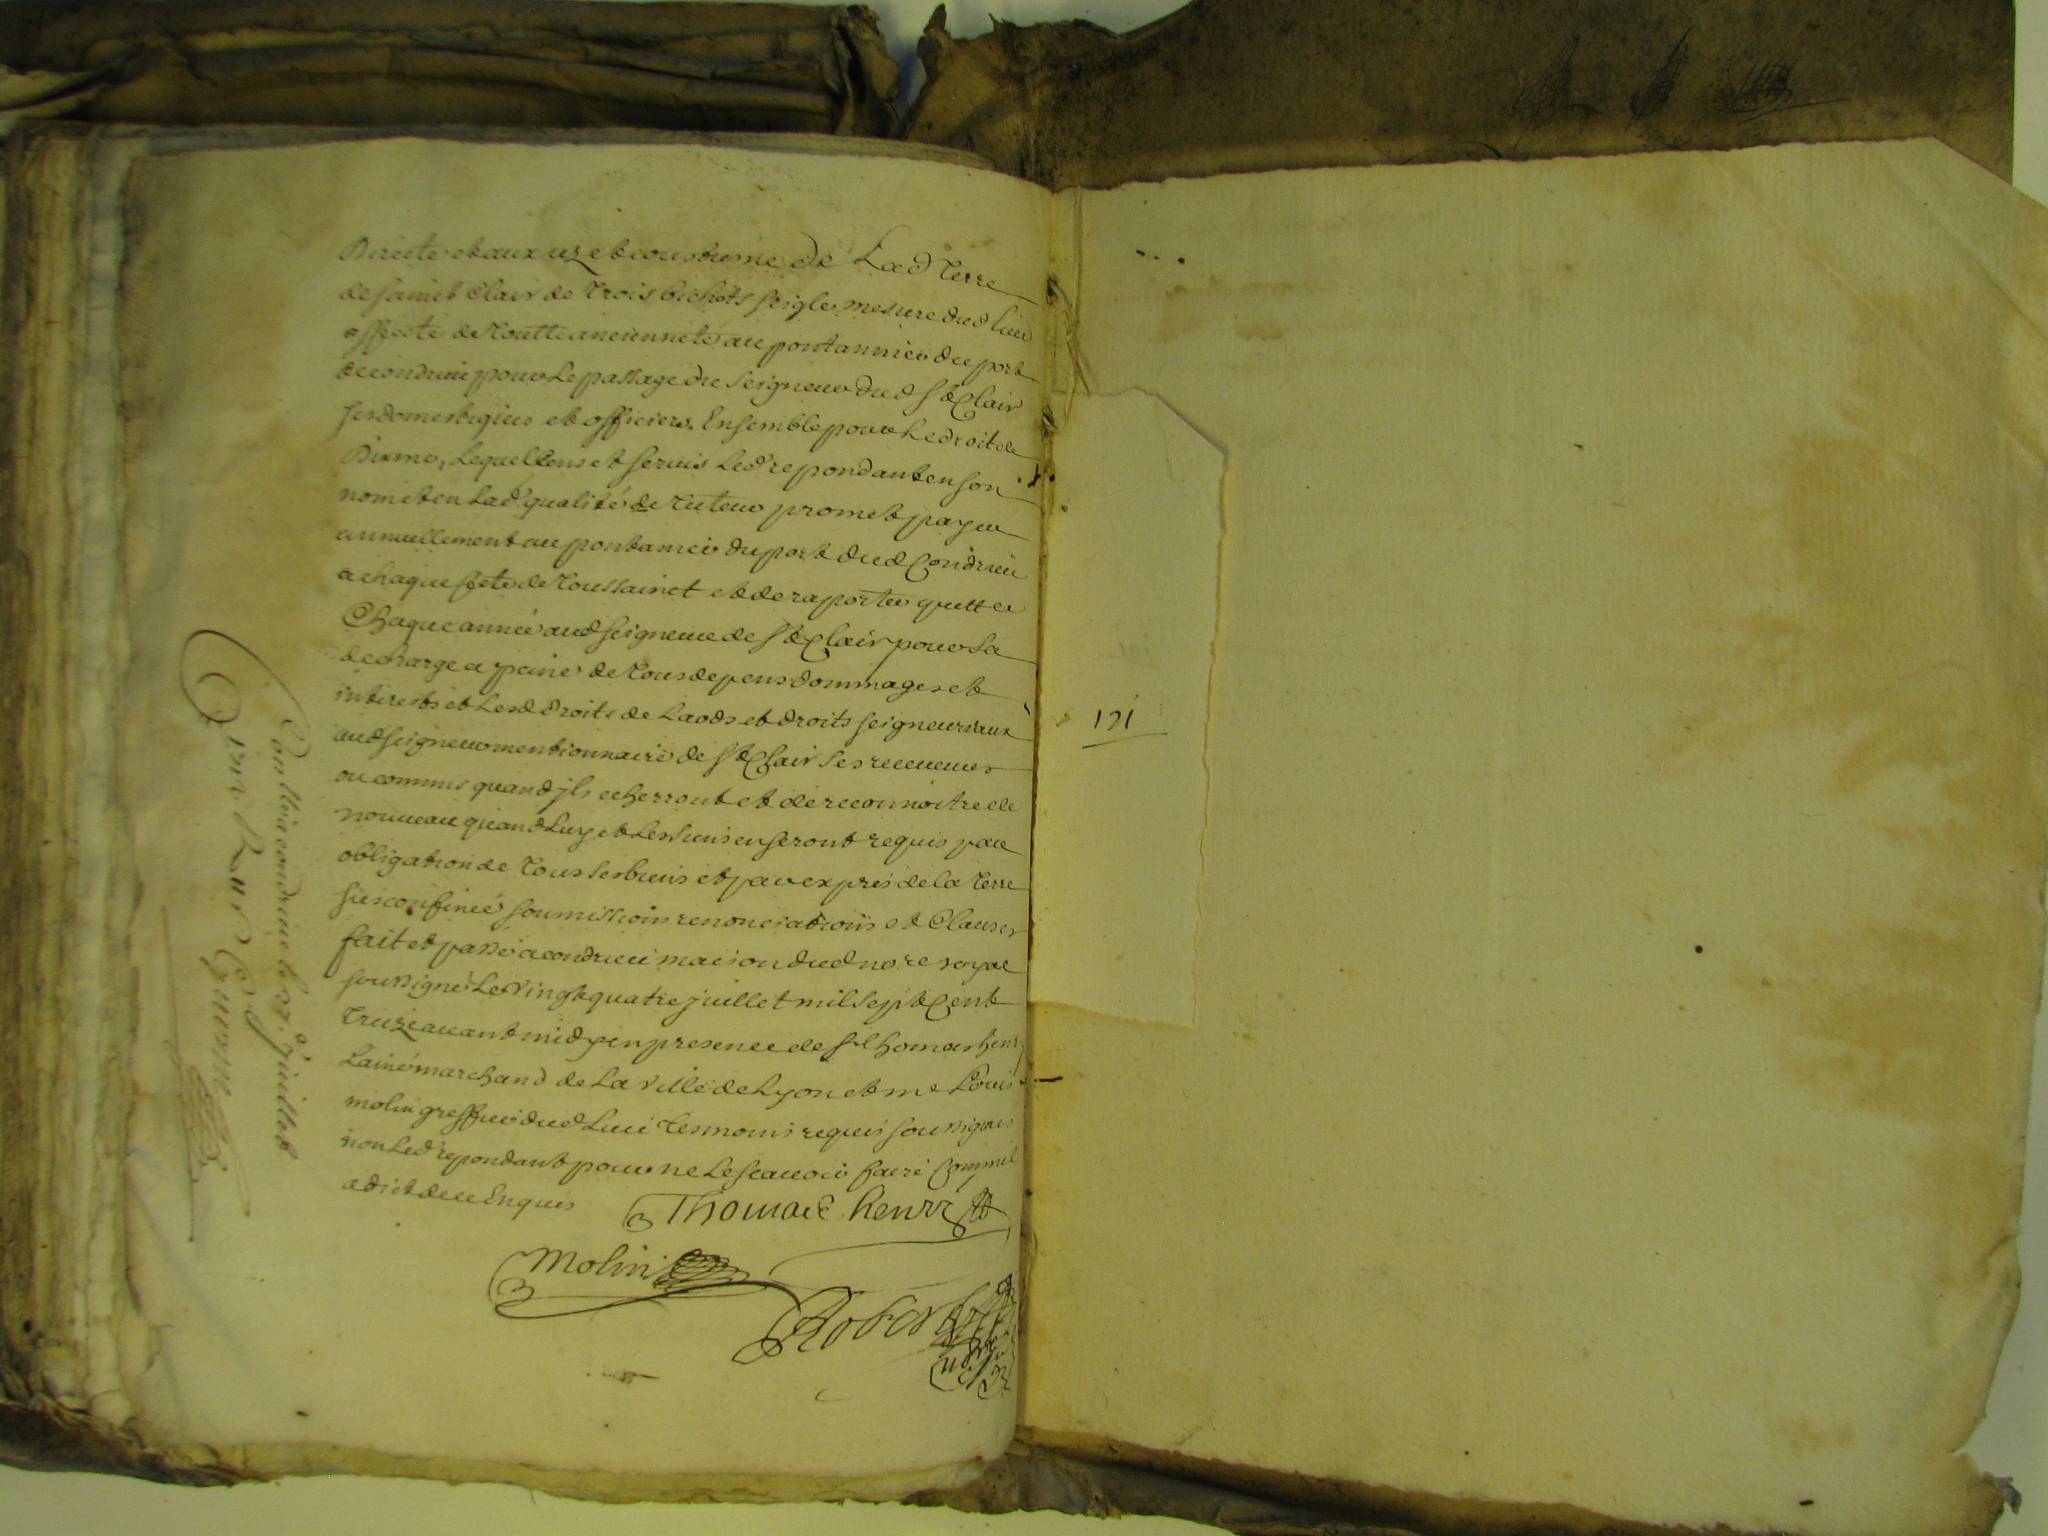 Directe et aux uz et coustume de Lad Terre
de sainct Clair de Trois bichets seigle mesure dud lieu
affecté de Toutte ancienneté au pontannier du port
de condrieu pour Le passage du seigneur dud St Clair
ses domestiques et officiers. Ensemble pour Le droit de
Disme, Lequel Cens et servis Led repondant en son
nom et en Lad qualité de Tuteur promet payer
annuellement au pontanier du port dud Condrieu
a chaque fete de Toussainct et de raporter quitte
Chaque année aud seigneur de St Clair pour La
decharge a peine de Tous depens dommages et
interests et Lesd droits de Laods et droits seigneuriaux
aud seigneur mentionnaire de St Clair ses receveurs
ou commis quand jls echerront et de reconnoitre de
nouveau quand Luy et Les siens en seront requis par
obligation de Tous ses biens et par expres de la Terre
sus confinée soumissions renonciations et Clauses
fait et passé a condrieu maison dud nore royal
soussigné Le vingt quatre juillet mil sept Cent
Treize avant midy en presence de sr Thomas henry
Lainé marchand de La ville de Lyon et me Louis
molin greffier dud Lieu Tesmoins requis soussignes
non Led repondant pour ne Le scavoir faire Comme il
a dict de ce Enquis
Thomas henry
Molin
Robert
Con lle a condrieu le 27e juillet
121